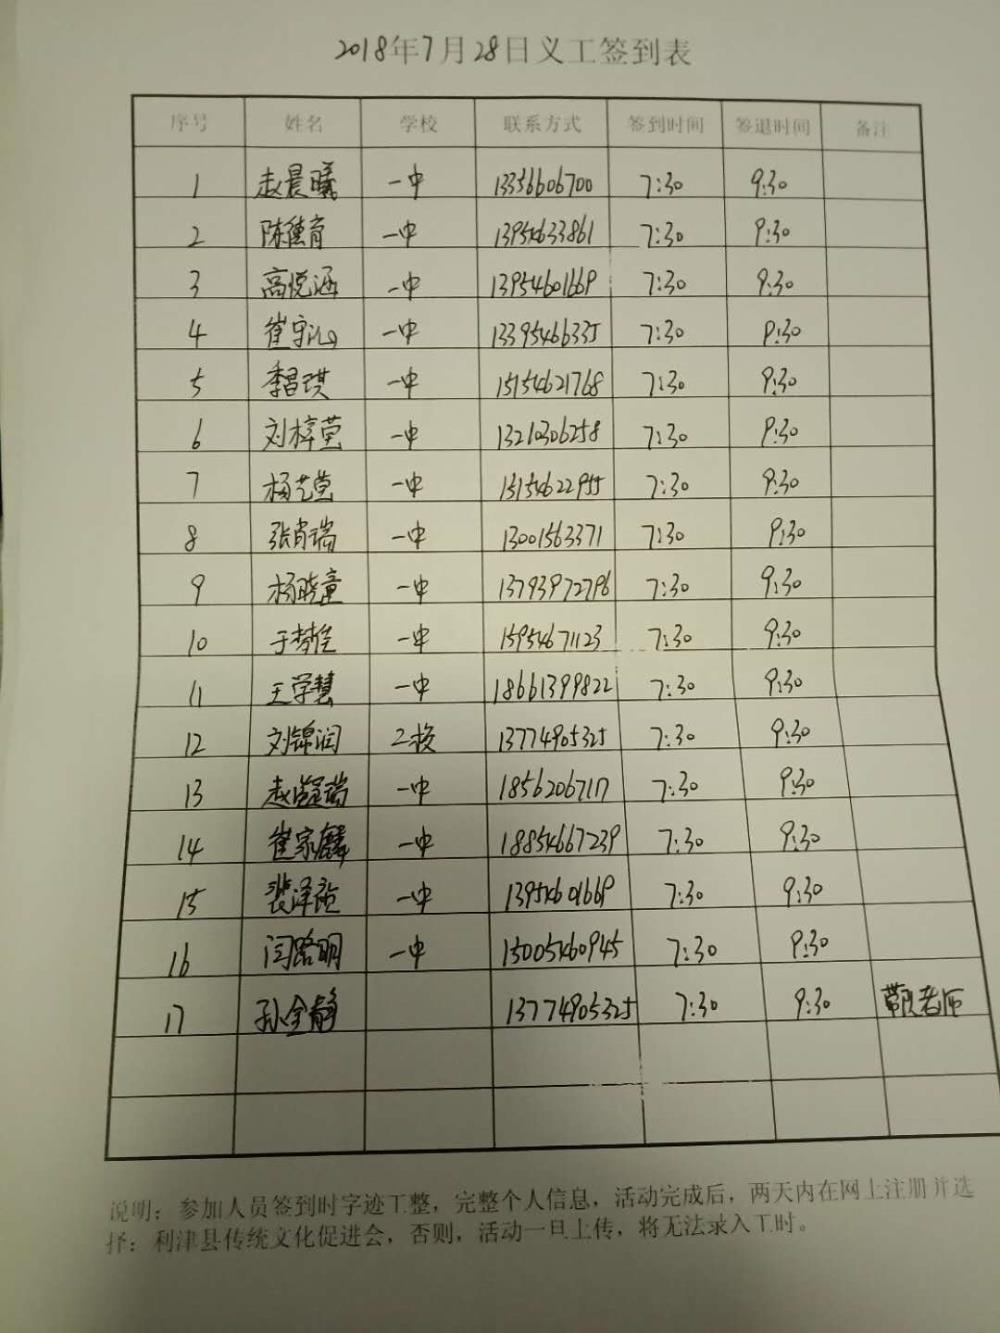 2018年7月28日义工签到表
序号 姓名 学校 联系方式 签到时间 签退时间 备注
1 赵晨曦 一中 13356606700 7:30 9:30
2 陈德育 一中 13954633861 7:30 9:30
3 高悦涵 一中 13954601669 7:30 9:30
4 崔宇 一中 13395466335 7:30 9:30
5 季昌琪 一中 15154621768 7:30 9:30
6 刘梓莹 一中 13210306258 7:30 9:30
7 杨艺莹 一中 15154622955 7:30 9:30
8 张肖瑞 一中 13001563371 7:30 9:30
9 杨晓童 一中 13793972796 7:30 9:30
10 于梦 一中 15954671123 7:30 9:30
11 王学慧 一中 18661399822 7:30 9:30
12 刘锦润 二校 13774905325 7:30 9:30
13 赵 瑞 一中 1856206717 7:30 9:30
14 崔家麟 一中 18854667239 7:30 9:30
15 裴泽 一中 13954601669 7:30 9:30
16 闫路明 一中 15005460945 7:30 9:30
17 孙全静 13774905325 7:30 9:30 带队老师
说明：参加人员签到时字迹工整，完整个人信息，活动完成后，两天内在网上注册并选
择：利津县传统文化促进会，否则，活动一旦上传，将无法录入工时。